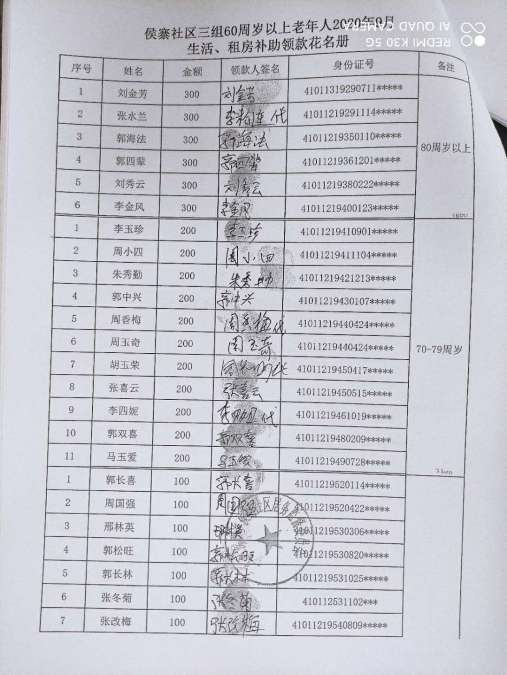 侯寨社区三组60周岁以上老年人2020年9月
生活、租房补助领款花名册
AI QUAD CAMERA
REDMI K30 5G
序号 姓名 金额 领款人签名 身份证号 备注
1 刘金芳 300 刘金芳 41011319290711*****
2 张水兰 300 代 41011219291114*****
3 郭海法 300 郭海法 41011219350110***** 80周岁以上
4 郭四辈 300 郭四辈 41011219361201*****
5 刘秀云 300 刘秀云 41011219380222*****
6 李金凤 300 李金凤 41011219400123*****
1 李玉珍 200 李玉珍 41011219410901*****
2 周小四 200 周小四 41011219411104*****
3 朱秀勤 200 朱秀勤 41011219421213*****
4 郭中兴 200 郭中兴 41011219430107*****
5 周香梅 200 周香梅代 41011219440424*****
6 周玉奇 200 周玉奇 41011219440424***** 70-79周岁
7 胡玉荣 200 代 41011219450417*****
8 张喜云 200 张喜云 41011219450515*****
9 李四妮 200 代 41011219461019*****
10 郭双喜 200 郭双喜 41011219480209*****
11 马玉爱 200 马玉爱 41011219490728*****
1 郭长喜 100 郭长喜 41011219520114*****
2 周国强 100 周国强 41011219520422*****
3 邢林英 100 41011219530306*****
4 郭松旺 100 郭松旺 41011219530820*****
5 郭长林 100 郭长林 41011219531025*****
6 张冬菊 100 张冬菊 410112531102***
7 张改梅 100 张改梅 41011219540809*****